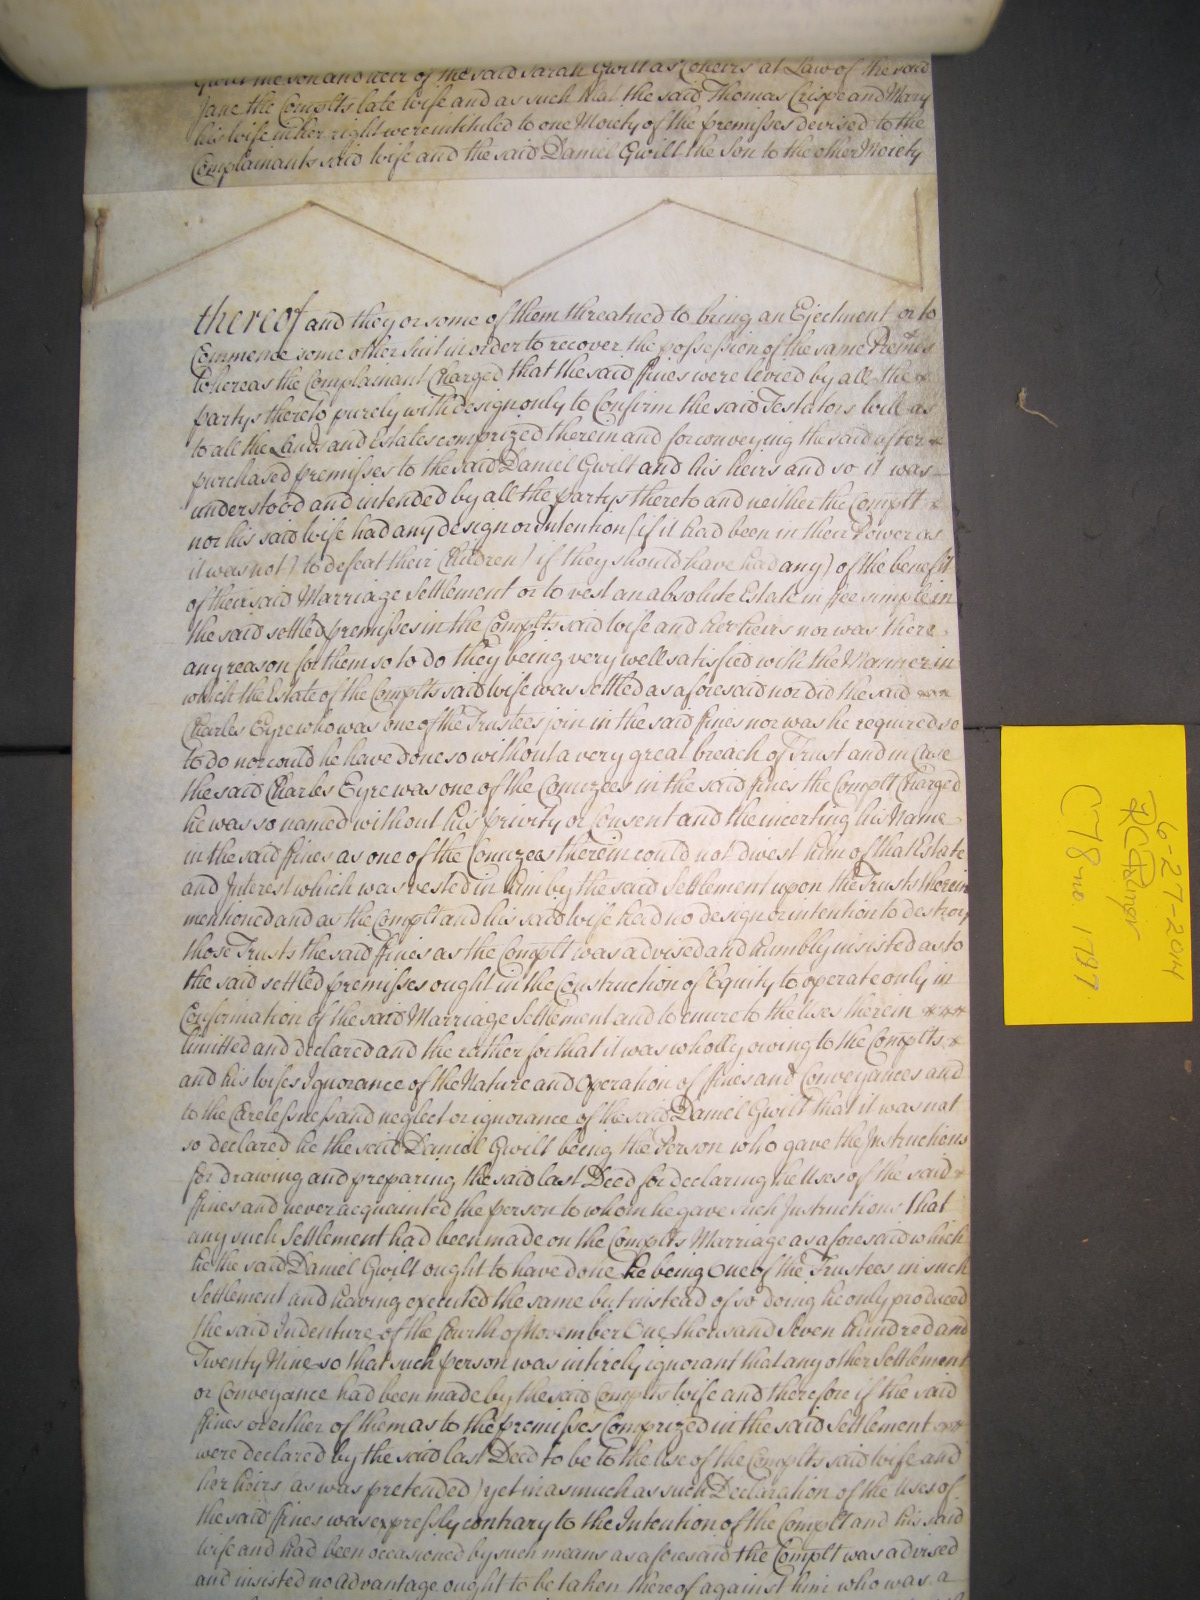 Gwilt the son and heir of the said Sarah Gwilt as Coheirs at Law of the said
Jane the Complts late wife and as such that the said Thomas Crispe and Mary
his wife in her right were intituled to one Moiety of the premisses devised to the
Complainants said wife and the said Daniel Gwilt the Son to the other Moiety
thereof and they or some of them threatned to bring an Ejectment or to
Commence some other Suit in order to recover the possession of the same Premes
Whereas the Complainant Charged that the said ffines were levied by all the
partys thereto purely with design only to Confirm the said Testators will as
to all the Lands and Estates comprized therein and for conveying the said after
purchased premisses to the said Daniel Gwilt and his heirs and so it was
understood and intended by all the partys thereto and neither the Complt
nor his said wife had any design or Intention (if it had been in their Power as
it was not) to defeat their Children) if they should have had any) of the benefit
of their said Marriage Settlement or to vest an absolute Estate in ffee simple in
the said settled premisses in the Complts said wife and her heirs nor was there
any reason for them so to do they being very well satisfied with the Manner in
which the Estate of the Complts said wife was settled as aforesaid nor did the said
Charles Eyre who was one of the Trustees join in the said ffines nor was he required so
to do nor could he have done so without a very great breach of Trust and in Case
the said Charles Eyre was one of the Conuzees in the said ffines the Complt Charged
he was so named without his privity or Consent and the incerting his Name
in the said ffines as one of the Conuzees therein could not divest him of that Estate
and Interest which was vested in him by the said Settlement upon the Trusts therein
mentioned and as the Complt and his said wife had no design or intention to destroy
those Trusts the said ffines as the Complt was advised and humbly insisted as to
the said settled premisses ought in the Construction of Equity to operate only in
Confirmation of the said Marriage Settlement and to enure to the Uses therein
limitted and declared and the rather for that it was wholly owing to the Complts
and his wifes Ignorance of the Nature and Operation of ffines and Conveyances and
to the Carelessness and neglect or ignorance of the said Daniel Gwilt that it was not
so declared he the said Daniel Gwilt being the Person who gave the Instructions
for drawing and preparing the said last Deed for declaring the Uses of the said
ffines and never acquainted the person to whom he gave such Instructions that
any such Settlement had been made on the Complts Marriage as aforesaid which
he the said Daniel Gwilt ought to have done he being One of the Trustees in such
Settlement and having executed the same but instead of so doing he only produced
the said Indenture of the fourth of November One thousand Seven hundred and
Twenty Nine so that such person was intirely ignorant that any other Settlement
or Conveyance had been made by the said Complts wife and therefore if the said
ffines or either of them as to the premisses Comprized in the said Settlement
were declared by the said last Deed to be to the Use of the Complts said wife and
her heirs as was pretended) yet in as much as such Declaration of the Uses of
the said ffines was expressly contrary to the Intention of the Complt and his said
wife and had been occasioned by such means as aforesaid the Complt was advised
and insisted no advantage ought to be taken thereof against him who was a
6-27-2014
C78 no 1797